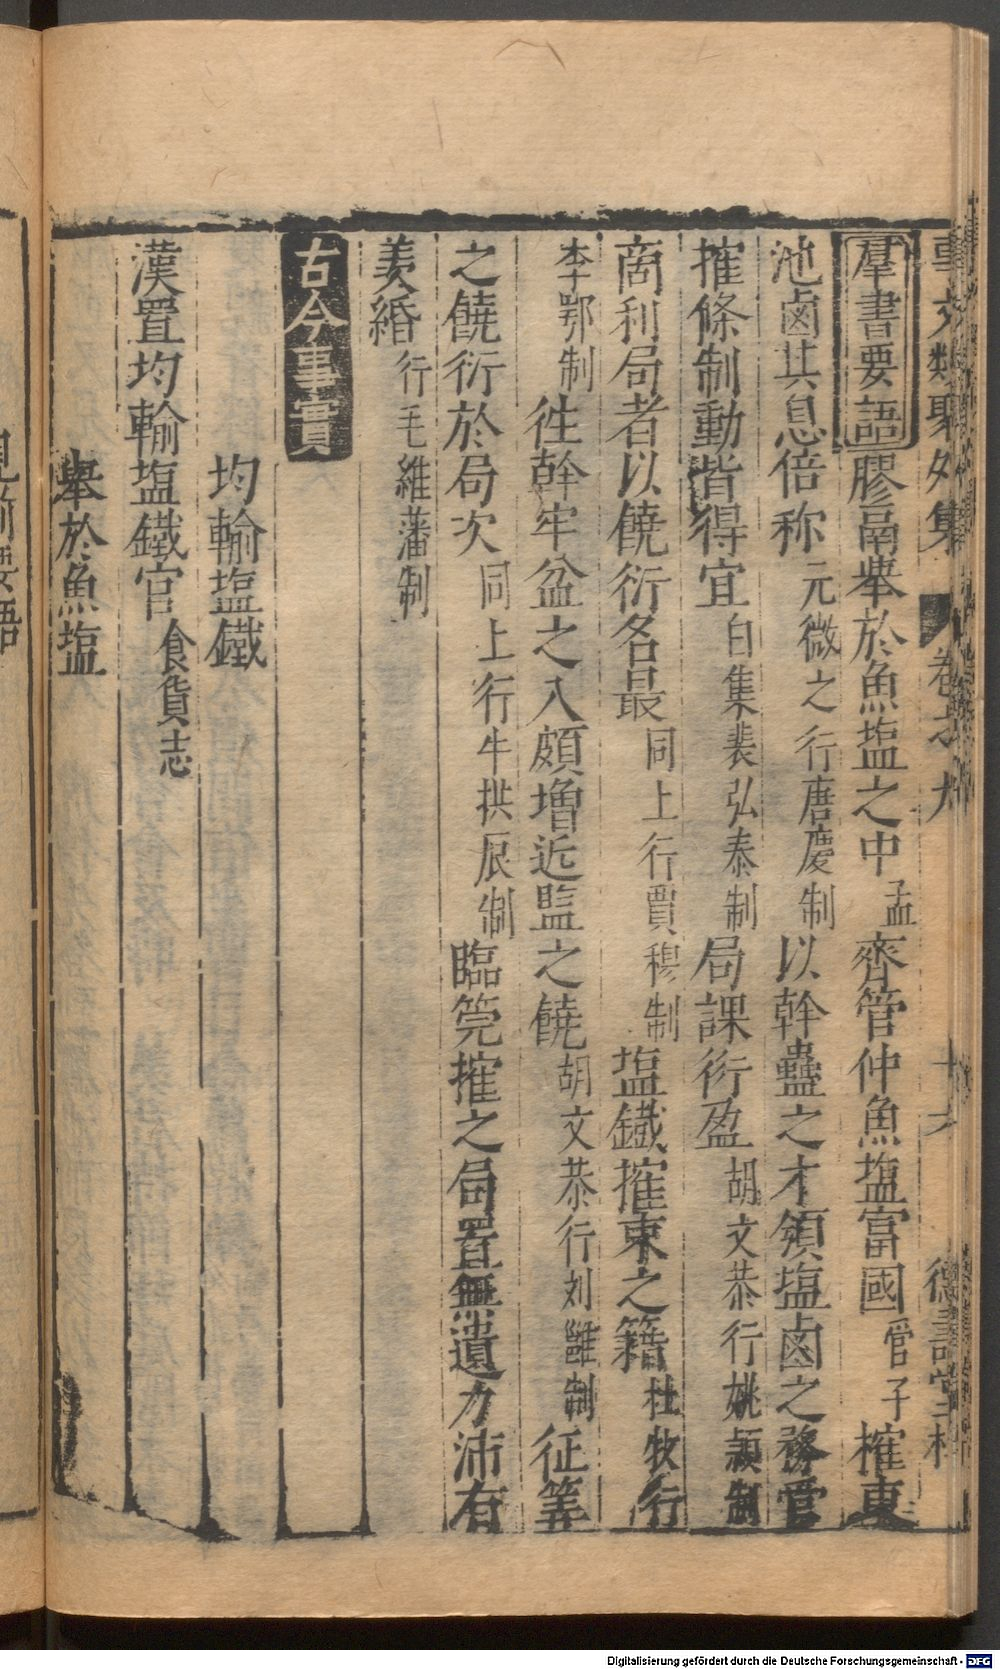 事文類聚外集 卷之九 十六 德壽堂梓
羣書要語 膠鬲舉於魚塩之中 孟 齊管仲魚塩富國 管子 榷東
池鹵其息倍称 元微之行唐慶制 以幹蠱之才領塩鹵之務官
搉條制動皆得宜 白集裴弘泰制 局課衍盈 胡文恭行姚穎制
商利局者以饒衍名最 同上行賈穆制 塩鐵搉東之籍 杜牧行
李鄂制 徃幹牢盆之入頗增近監之饒 胡文恭行刘雝制 征筭
之饒衍於局次 同上行牛拱辰制 臨筦搉之局置無遺力沛有
羡緡 行毛維藩制
古今事實
均輸塩鐵
漢置均輸塩鐵官 食貨志
舉於魚塩
見前要語
Digitalisierung gefördert durch die Deutsche Forschungsgemeinschaft - DFG